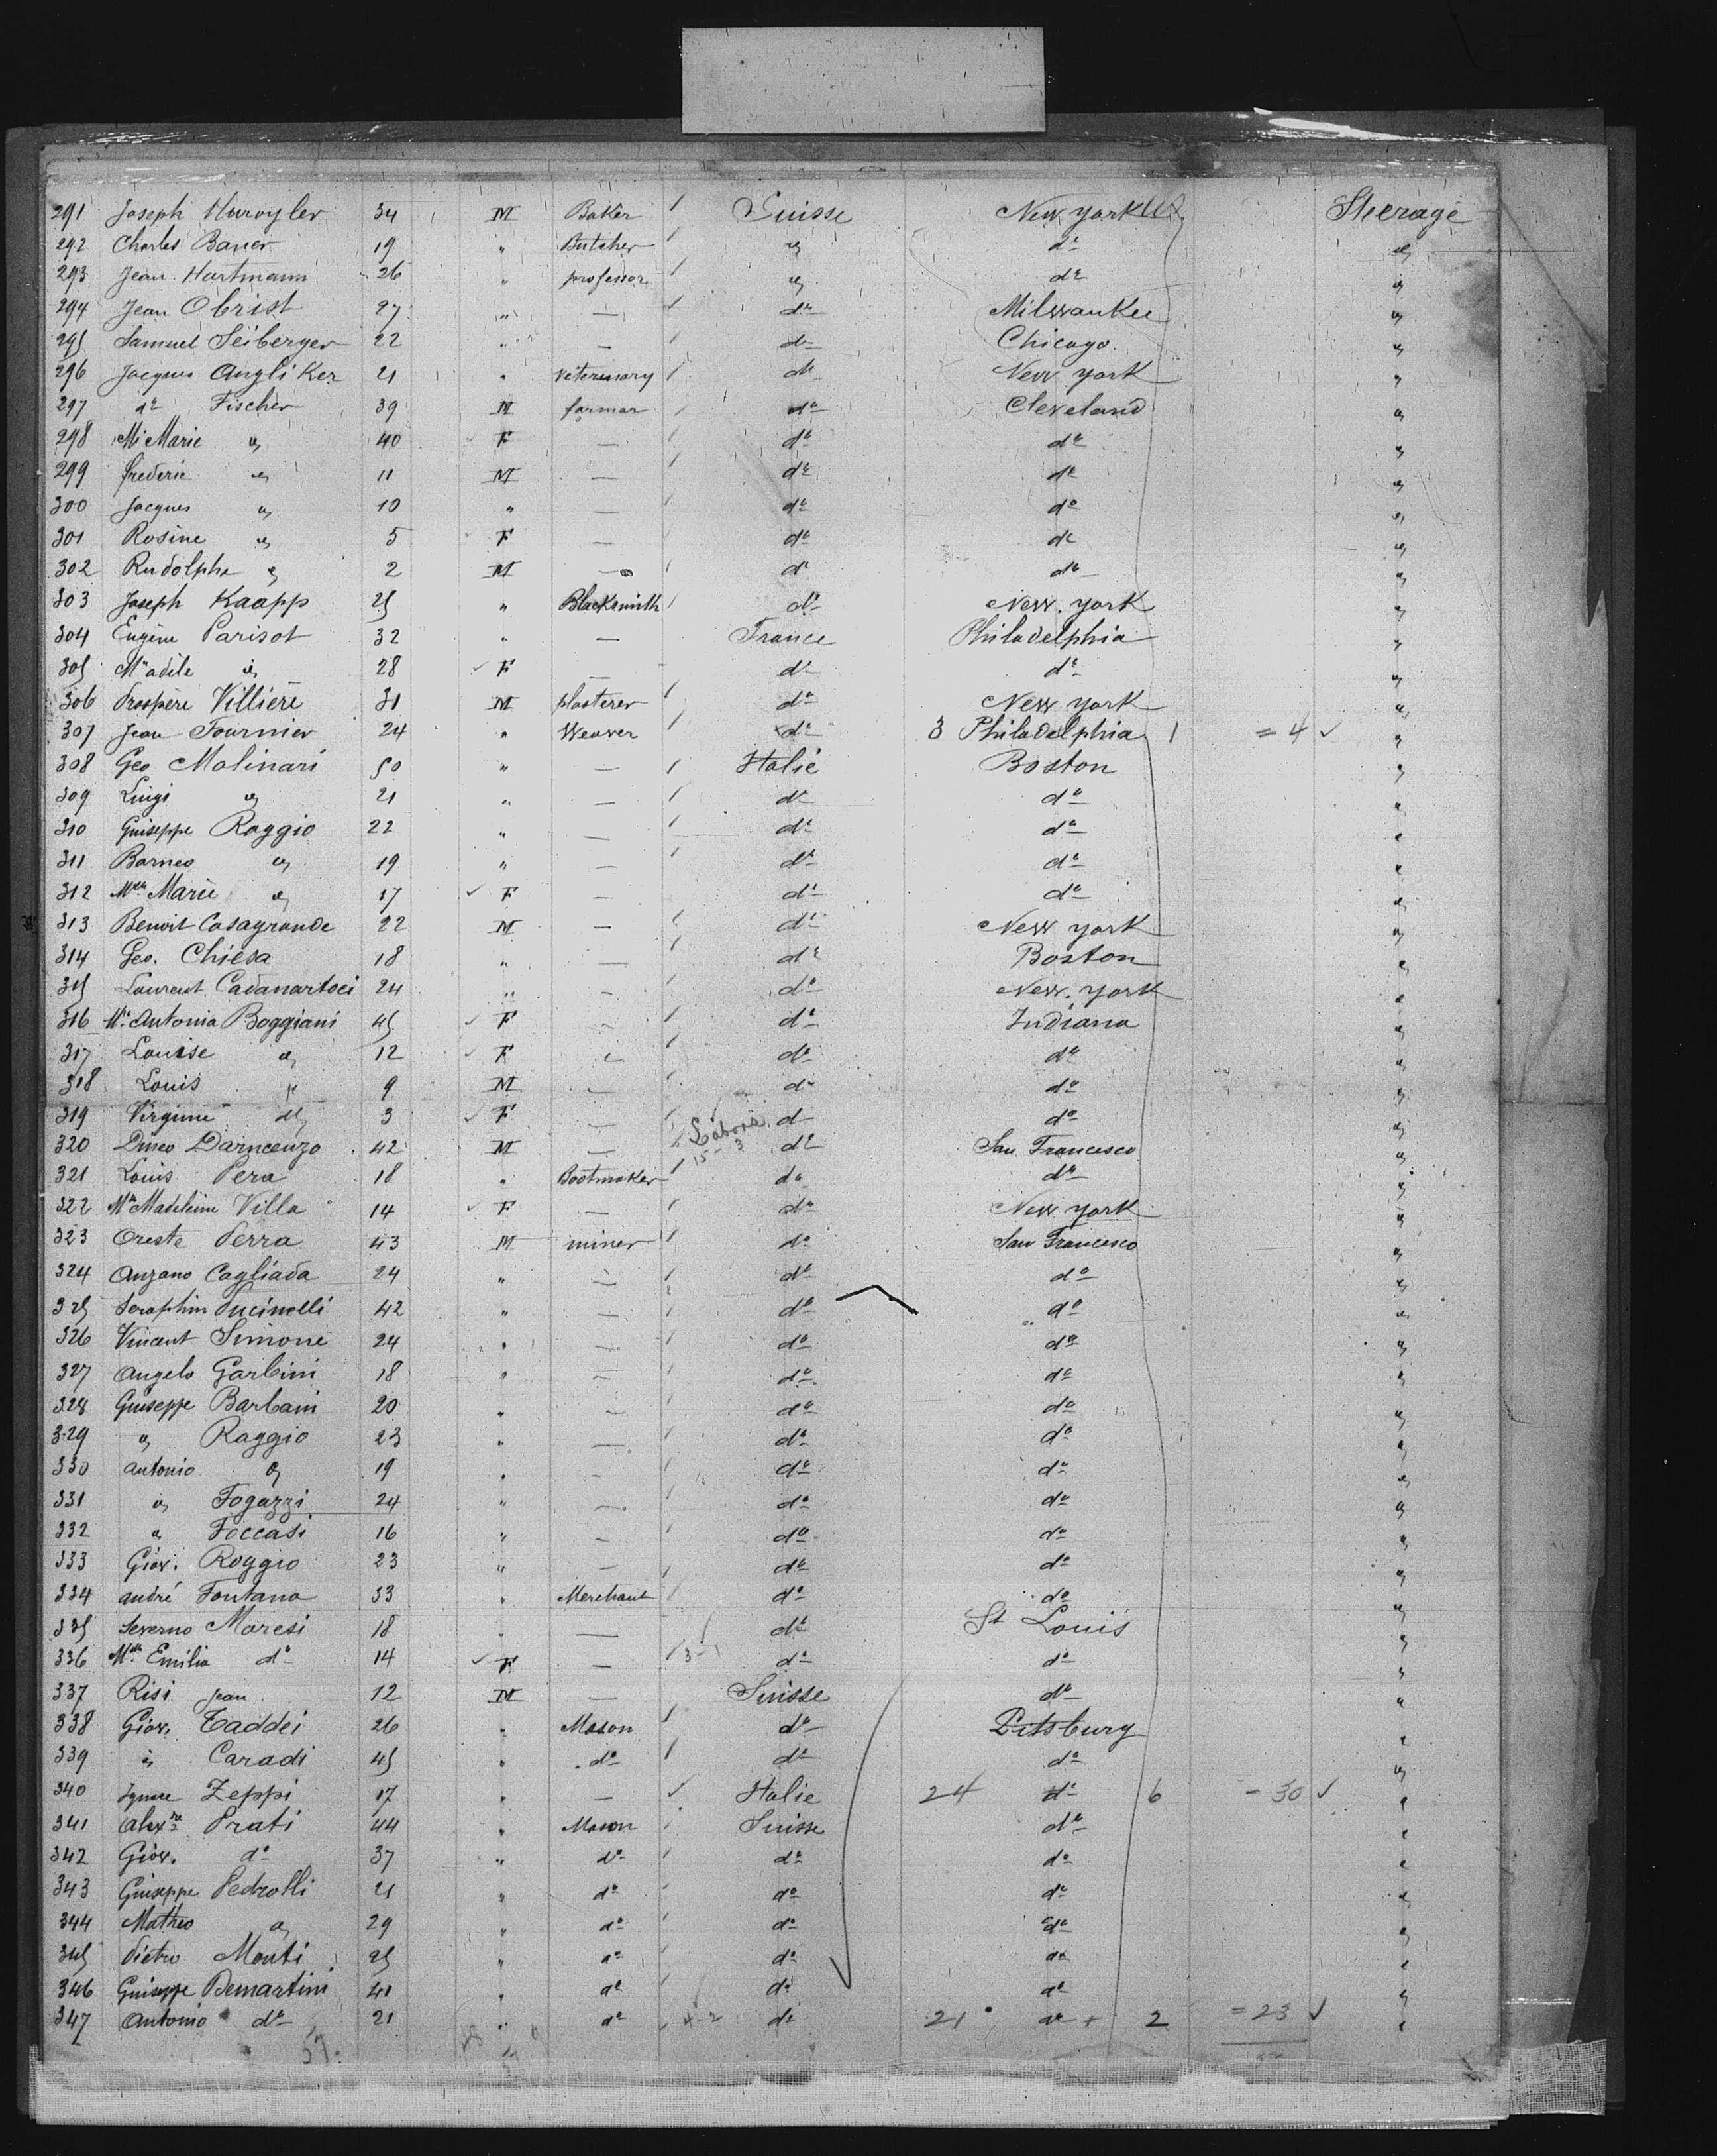 291 Joseph 34 M Baker Suisse New york US Steerage
292 Charles Bauer 19 " Butcher " do "
293 Jean Hartmann 26 " professor " do "
294 Jean Obrist 27 " — do Milwaukee "
295 Samuel Seiberger 22 " — do Chicago "
296 Jacques Angliker 21 " veterinary do New york "
297 do Fischer 39 M farmar do Cleveland "
298 Me Marie " 40 F — do do "
299 frederic " 11 M — do do "
300 Jacques " 10 " — do do "
301 Rosine " 5 F — do do "
302 Rudolphe " 2 M — do do "
303 Joseph Kaapp 25 " Blacksmith do New york "
304 Eugène Parisot 32 " — France Philadelphia "
305 Me adèle " 28 F — do do "
306 Prospère Villière 31 M plasterer do New york "
307 Jean Fournier 24 " Weaver do 3 Philadelphia 1 = 4 "
308 Geo Molinari 50 " — Italie Boston "
309 Luigi " 21 " — do do "
310 Guiseppe Raggio 22 " — do do "
311 Borneo " 19 " — do do "
312 Mlle Marie " 17 F — do do "
313 Benoit Casagrande 22 M — do New york "
314 Geo. Chiesa 18 " — do Boston "
315 Laurent 24 " — do New york "
316 Me Antonia Boggiani 45 F do Indiana "
317 Louise " 12 F " do do "
318 Louis " 9 M — do do "
319 Virginie do 3 F — do do "
320 42 M — 15-3 do San Francesco "
321 Louis Pera 18 " Bootmaker do do "
322 Me Madeleine Villa 14 F — do New york "
323 Oreste Perra 43 M miner do San Francesco "
324 Anzano Cagliada 24 " — do do "
325 Seraphin Pucinelli 42 " — do do "
326 Vincent Simone 24 " — do do "
327 Angelo Garbini 18 " — do do "
328 Guiseppe Barbani 20 " — do do "
329 " Raggio 23 " — do do "
330 Antonio " 19 " — do do "
331 " Fogazzi 24 " — do do "
332 " Foccasi 16 " — do do "
333 Giov. Roggio 23 " — do do "
334 André Fontana 33 " Merchant do do "
335 Severno Maresi 18 " — do St Louis "
336 Mlle Emilia do 14 F — 3-1 do do "
337 Risi Jean 12 M — Suisse do "
338 Giov. Taddei 26 " Mason do Pitsburg "
339 " Caradi 45 " do do do "
340 Zeppi 17 " — Italie 24 do 6 = 30 "
341 Alexre Prati 44 " Mason Suisse do "
342 Giov. do 37 " do do do "
343 Guiseppe Pedrotti 21 " do do do "
344 Matheo " 29 " do do do "
345 Pietro Monti 25 " do do do "
346 Guiseppe Demartini 41 " do do do "
347 Antonio do 21 " do 4-2 do 21 do + 2 = 23 "
57